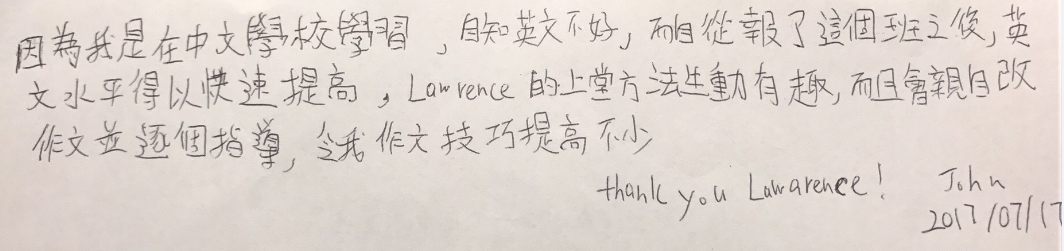 因為我是在中文學校學習，自知英文不好，而自從報了這個班之後，英
文水平得以快速提高，Lawrence 的上堂方法生動有趣，而且會親自改
作文並逐個指導，令我作文技巧提高不少
thank you Lawarence!
John
2017/07/17